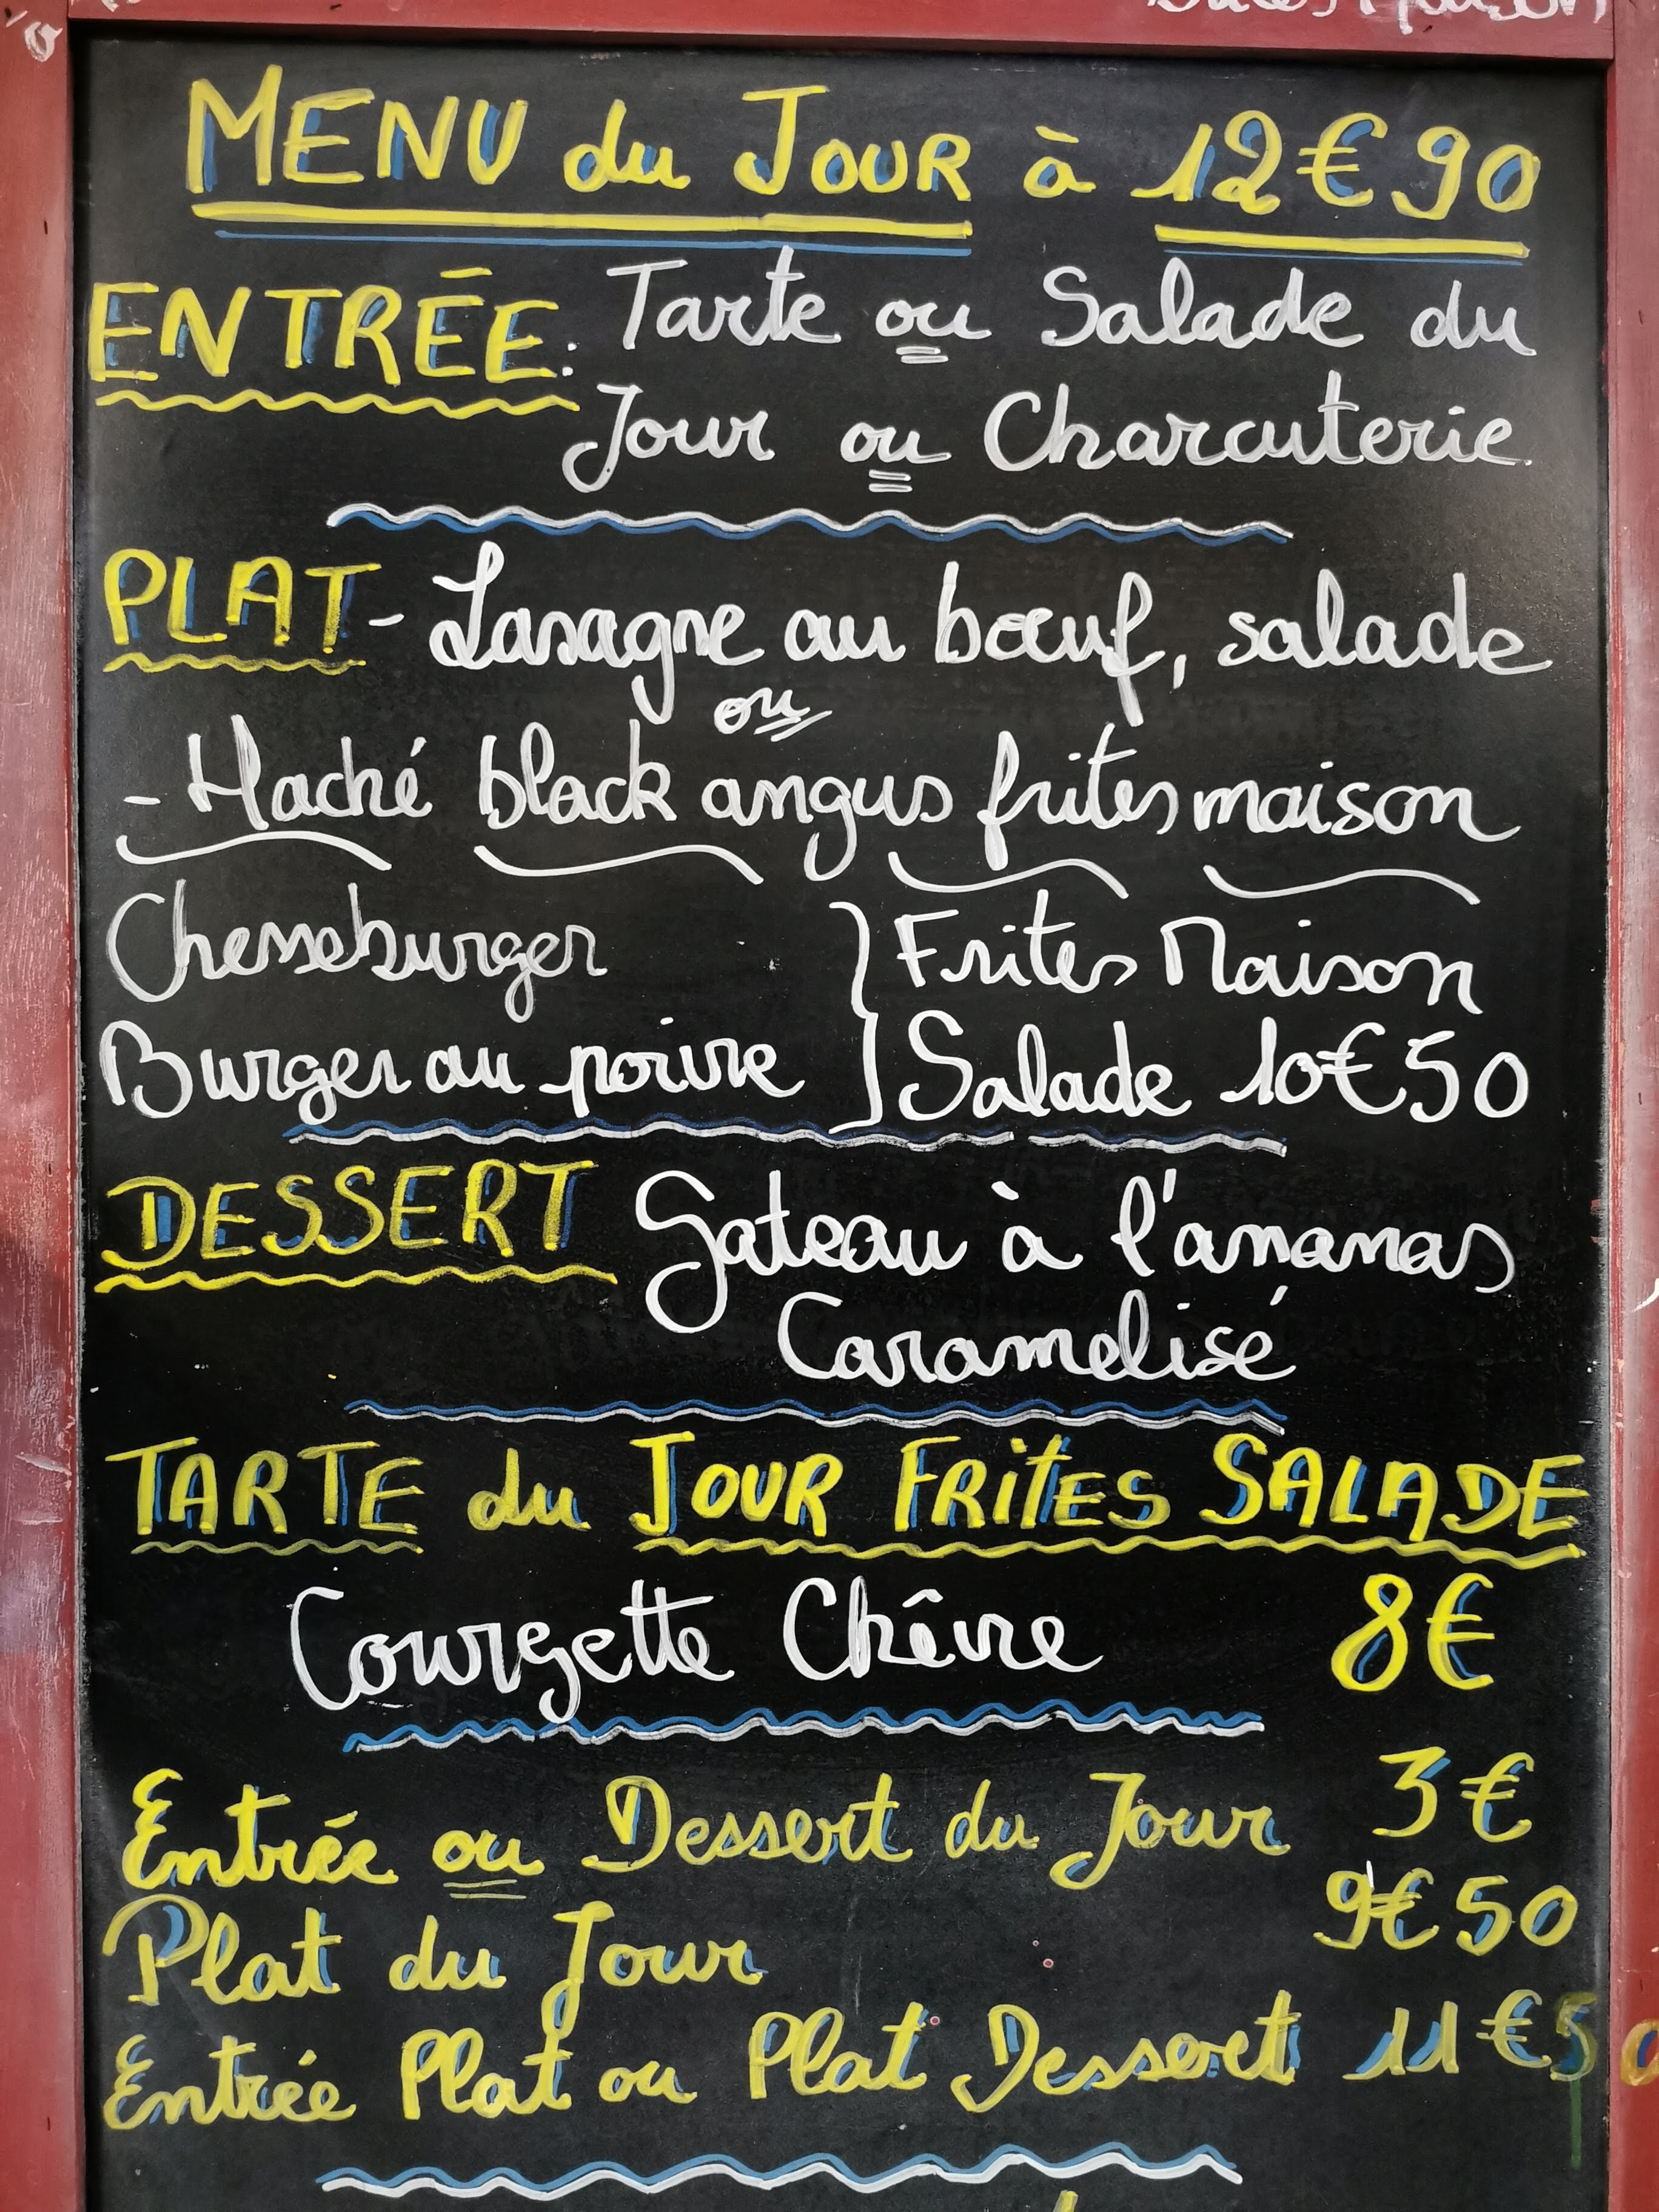 MENU du JOUR à 12€90
ENTRÉE: Tarte ou Salade du
Jour ou Charcuterie.
PLAT - Lasagne au bœuf, salade
ou
- Haché black angus frites maison
Chesseburger } Frites Maison
Burger au poivre } Salade 10€50
DESSERT Gateau à l'ananas
Caramelisé
TARTE du JOUR FRITES SALADE
Courgette Chêvre 8€
Entrée ou Dessert du Jour 3€
Plat du Jour 9€50
Entrée Plat ou Plat Dessert 11€50